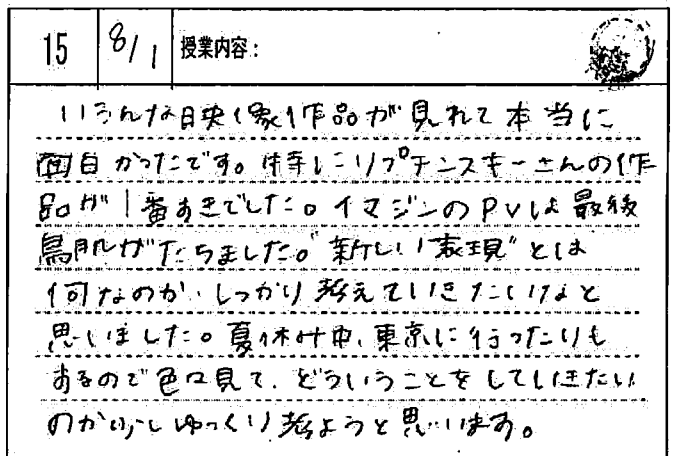 15 8/1 授業内容：
いろんな映像作品が見れて本当に
面白かったです。特にリプチンスキーさんの作
品が1番すきでした。イマジンのPVは最後
鳥肌がたちました。"新しい表現"とは
何なのか、しっかり考えていきたいなと
思いました。夏休み中、東京に行ったりも
あるので色々見て、どういうことをしていきたい
のか少しゆっくり考ようと思います。